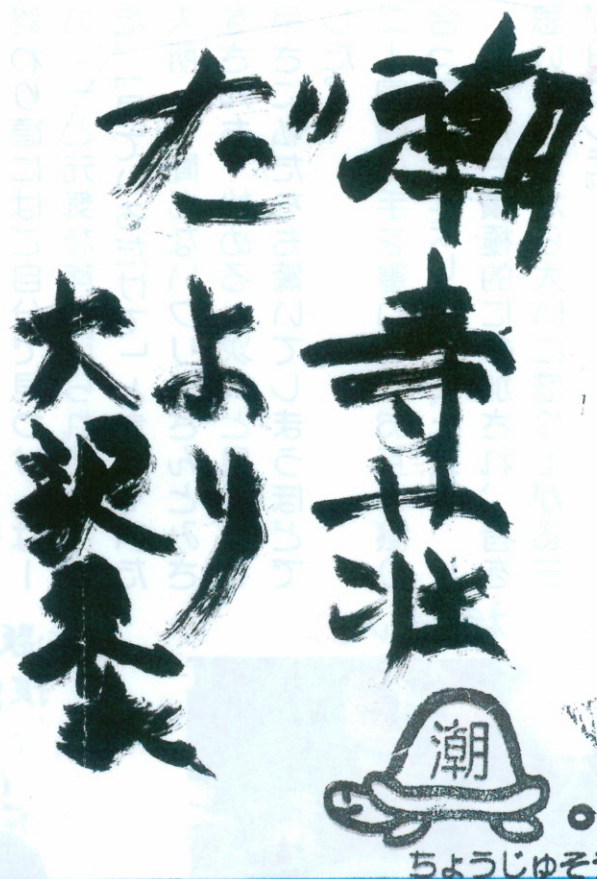 潮寿荘
だより
大沢
潮
ちょうじゅそう